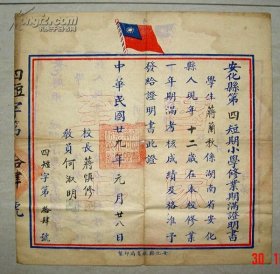 安化縣第四短期小學修業期滿證明書
學生蔣蘭秋係湖南省安化
縣人現年十二歲在本校修業
一年期滿考核成績及格准予
發給證明書此證
校長蔣慎修
教員何淑明
中華民國廿九年元月廿八日
四短字第拾肆號
四短字第拾肆號
30